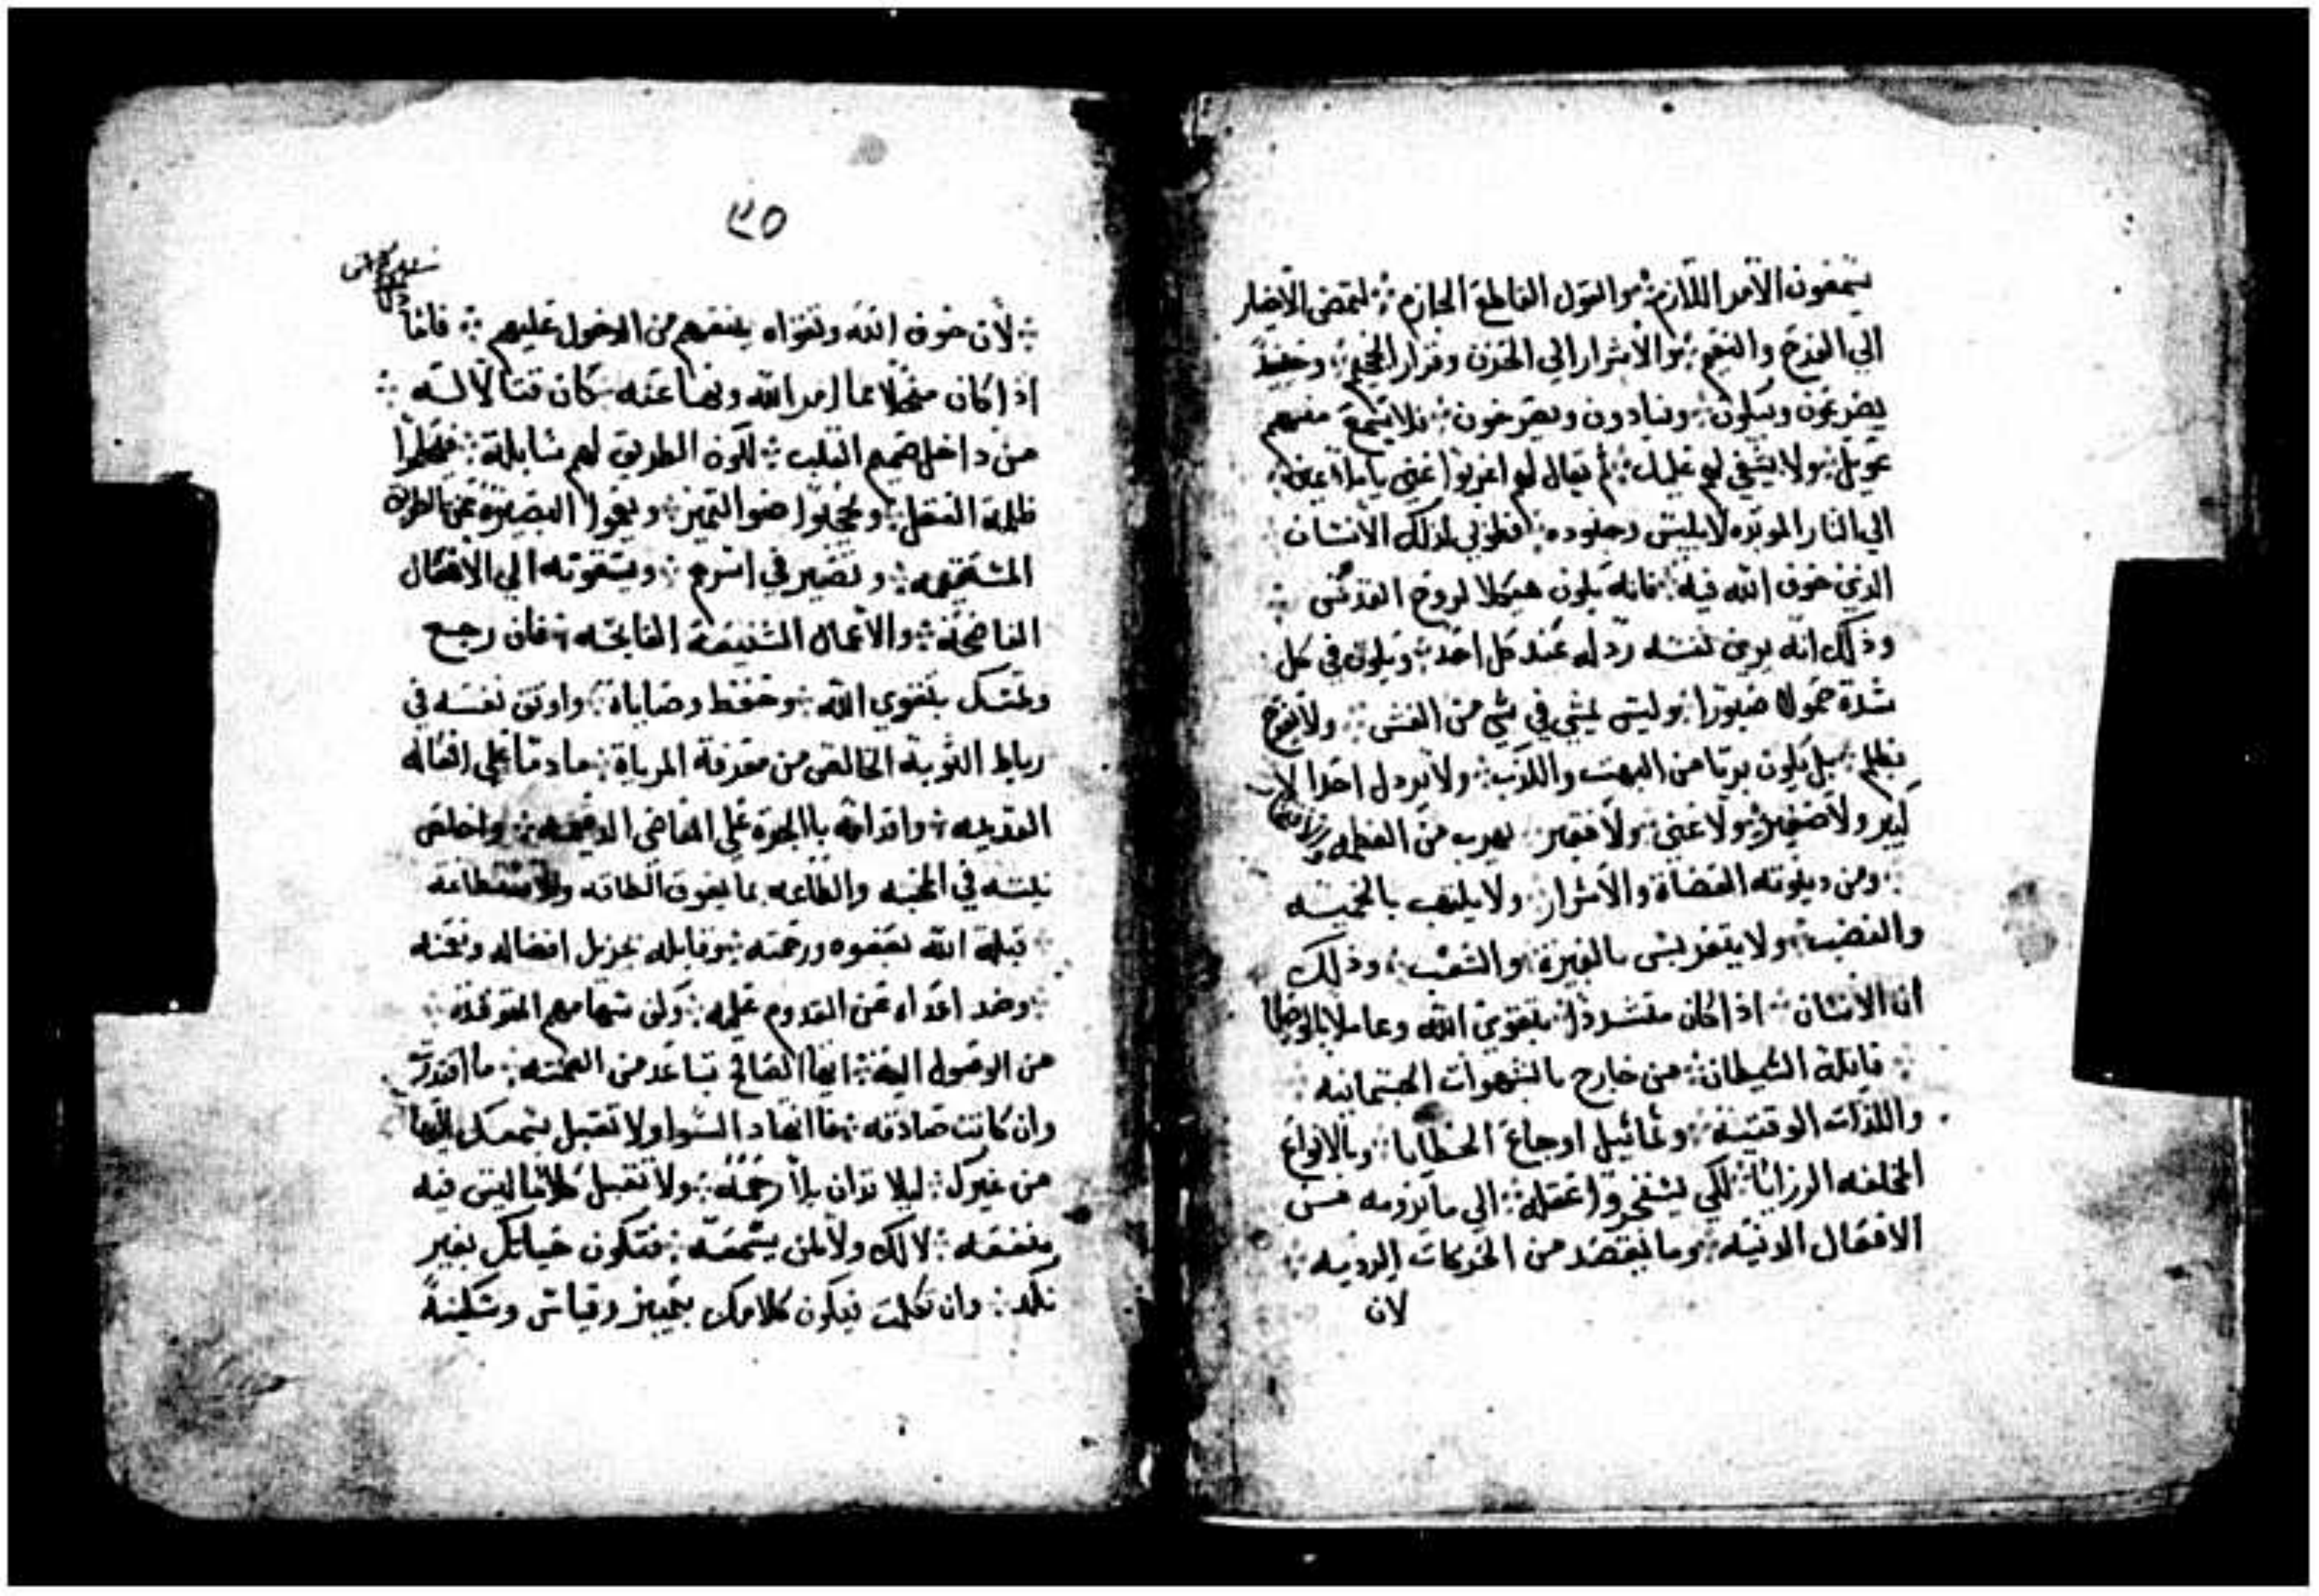 يسمعون الامر اللازم ۞ والقول القاطع الجازم ۞ لتمضى الاخيار
الي الفرح والنعيم ۞ والاشرار الي الحزن وقرار الجحيم ۞ وحينيذ
يضرعون ويبكون ۞ وينادون ويصرخون ۞ فلا يسمع منهم
عويل ۞ ولا يشفي لهم غليل ۞ ثم يقال لهم اغربوا عني يا ملاعين
الي النار الموبده لابليس وجنوده ۞ فطوبي لذلك الانسان
الذي خوف الله فيه ۞ فانه يكون هيكلا لروح القدس ۞
وذلك انه يري نفسه رذله عند كل احد ۞ ويكون في كل
شدة حمولا صبورا ۞ وليس يمشي في شي من الغش ۞ ولا يفرح
بظلم ۞ بل يكون بريا من البهت والكذب ۞ ولا يرذل احدا لا
كبير ولا صغير ۞ ولا غني ۞ ولا فقير ۞ يهرب من العظمه
۞ ومن دينونته القضاة والاشرار ۞ ولا يلتهب بالحميه
والغضب ۞ ولا يتفريس بالغيرة ۞ والشغب ۞ وذلك
ان الانسان ۞ اذا كان بتقوي الله وعاملا بالوصايا
۞ قاتله الشيطان ۞ من خارج بالشهوات الجسمانيه
واللذات الوقتيه ۞ وتماثيل اوجاع الخطايا ۞ وبالانواع
المختلفه الرزايا ۞ لكي عقله ۞ الي ما يرومه من
الافعال الدنيه ۞ وما يقصد من الحركات الرديه ۞
لان
٣٥
۞ لان خوف الله وتقواه يمنعهم من الدخول عليهم ۞ فاما
اذا كان متخلا عما امر الله ونها عنه كان قتالا له ۞
من داخل صميم القلب ۞ لكون الطريق لهم سابله ۞
ظلمة العقل ۞ ضو التميز ۞ البصيرة عن الطريق
المستقيمه ۞ وتصير في اسرهم ۞ الي الافعال
الفاضحه ۞ والاعمال الشنيعة القابحه ۞ فان رجع
وتمسك بتقوي الله ۞ وحفظ وصاياة ۞ واوثق نفسه في
رباط التوبة الخالص من معرفة المرياة ۞ نادما علي افعاله
القديمه ۞ واقدامه بالجرة علي المعاصي الدميمه ۞ واخلص
نيته في المحبه والطاعه بما يفوق الطاقه والاستطاعه
۞ قبله الله بعفوه ورحمته ۞ وقابله بجزيل افضاله ونعمته
۞ وصد اعداه عن القدوم عليه ۞ سهامهم المتوقده
من الوصول اليه ۞ ايها القاي تباعد من العمته ۞ ما اقتدرت
وان كانت صادقه ۞ السوا ولا تقبل بسمعك
من غيرك ۞ ليلا تدان بلا رحمه ۞ ولا تقبل كلاما ليس فيه
منفعه ۞ لا لك ولا لمن يسمعه ۞ فتكون حياتك بغير
نكد ۞ وان تكلمت فيكون كلامك بتمييز وقياس وسكينة